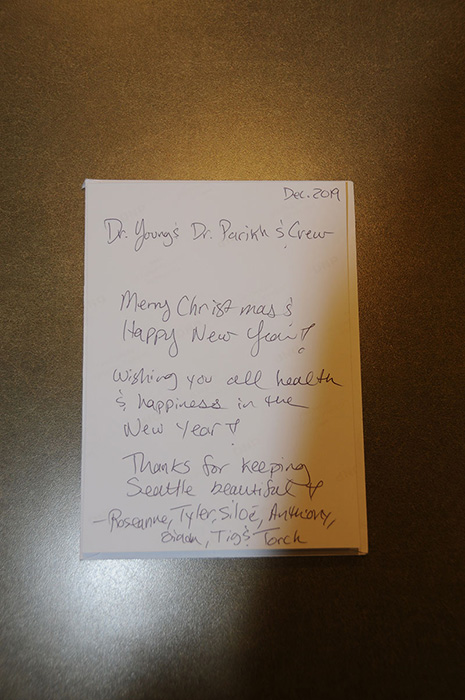 Dec. 2019
Dr. Young & Dr. Parikh & Crew
Merry Christmas &
Happy New Year!
Wishing you all health
& happiness in the
New Year!
Thanks for keeping
Seattle beautiful
- Roseanne, Tyler, Siloé, Anthony,
, Tig & Torch